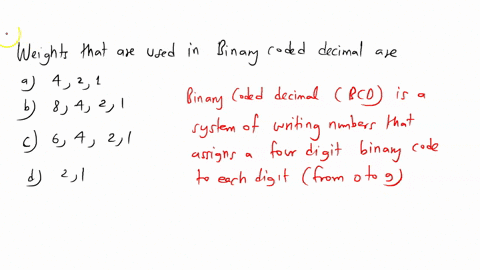 Weights that are used in Binary coded decimal are
a) 4, 2, 1
b) 8, 4, 2, 1
c) 6, 4, 2, 1
d) 2, 1
Binary Coded decimal (BCD) is a
system of writing numbers that
assigns a four digit binary code
to each digit (from 0 to 9)